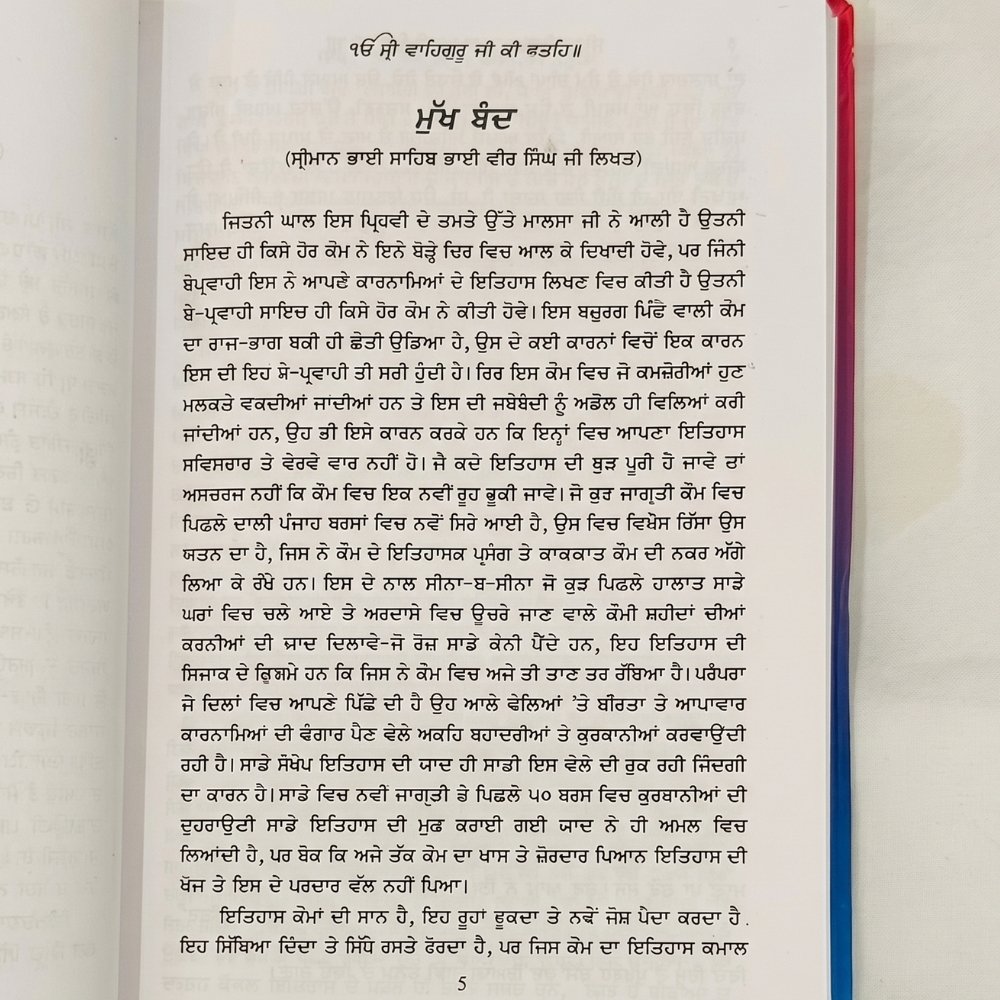 ੴ ਸ੍ਰੀ ਵਾਹਿਗੁਰੂ ਜੀ ਕੀ ਫਤਹਿ॥
ਮੁੱਖ ਬੰਦ
(ਸ੍ਰੀਮਾਨ ਭਾਈ ਸਾਹਿਬ ਭਾਈ ਵੀਰ ਸਿੰਘ ਜੀ ਲਿਖਤ)
ਜਿਤਨੀ ਘਾਲ ਇਸ ਪ੍ਰਿਹਵੀ ਦੇ ਤਮਤੇ ਉੱਤੇ ਮਾਲਸਾ ਜੀ ਨੇ ਆਲੀ ਹੈ ਉਤਨੀ
ਸਾਇਦ ਹੀ ਕਿਸੇ ਹੋਰ ਕੋਮ ਨੇ ਇਨੇ ਬੋੜ੍ਹੇ ਢਿਰ ਵਿਚ ਆਲ ਕੇ ਦਿਖਾਦੀ ਹੋਵੇ, ਪਰ ਜਿੰਨੀ
ਬੇਪ੍ਰਵਾਹੀ ਇਸ ਨੇ ਆਪਣੇ ਕਾਰਨਾਮਿਆਂ ਦੇ ਇਤਿਹਾਸ ਲਿਖਣ ਵਿਚ ਕੀਤੀ ਹੈ ਉਤਨੀ
ਬੇ-ਪ੍ਰਵਾਹੀ ਸਾਇਚ ਹੀ ਕਿਸੇ ਹੋਰ ਕੋਮ ਨੇ ਕੀਤੀ ਹੋਵੇ। ਇਸ ਬਚੁਰਗ ਪਿੰਛੈ ਵਾਲੀ ਕੌਮ
ਦਾ ਰਾਜ-ਭਾਗ ਬਕੀ ਹੀ ਛੇਤੀ ਉਡਿਆ ਹੇ, ਉਸ ਦੇ ਕਈ ਕਾਰਨਾਂ ਵਿਚੋਂ ਇਕ ਕਾਰਨ
ਇਸ ਦੀ ਇਹ ਸ਼ੇ-ਪ੍ਰਵਾਹੀ ਤੀ ਸਰੀ ਹੁੰਦੀ ਹੇ। ਰਿਰ ਇਸ ਕੋਮ ਵਿਚ ਜੋ ਕਮਜ਼ੋਰੀਆਂ ਹੁਣ
ਮਲਕਤੇ ਵਕਦੀਆਂ ਜਾਂਦੀਆਂ ਹਨ ਤੇ ਇਸ ਦੀ ਜਬੇਬੰਦੀ ਨੂੰ ਅਡੋਲ ਹੀ ਵਿਲਿਆਂ ਕਰੀ
ਜਾਂਦੀਆਂ ਹਨ, ਉਹ ਭੀ ਇਸੇ ਕਾਰਨ ਕਰਕੇ ਹਨ ਕਿ ਇਨ੍ਹਾਂ ਵਿਚ ਆਪਣਾ ਇਤਿਹਾਸ
ਸਵਿਸਚਾਰ ਤੇ ਵੇਰਵੇ ਵਾਰ ਨਹੀਂ ਹੋ। ਜੈ ਕਦੇ ਇਤਿਹਾਸ ਦੀ ਥੁੜ ਪੂਰੀ ਹੋ ਜਾਵੇ ਤਾਂ
ਅਸਚਰਜ ਨਹੀਂ ਕਿ ਕੌਮ ਵਿਚ ਇਕ ਨਵੀਂ ਰੂਹ ਭੂਕੀ ਜਾਵੇ। ਜੋ ਕੁਝ ਜਾਗ੍ਰਤੀ ਕੌਮ ਵਿਚ
ਪਿਫਲੇ ਦਾਲੀ ਪੰਜਾਹ ਬਰਸਾਂ ਵਿਚ ਨਵੇਂ ਸਿਰੇ ਆਈ ਹੈ, ਉਸ ਵਿਚ ਵਿਖੋਸ ਰਿੱਸਾ ਉਸ
ਯਤਨ ਦਾ ਹੈ, ਜਿਸ ਨੇ ਕੌਮ ਦੇ ਇਤਿਹਾਸਕ ਪ੍ਰਸੰਗ ਤੇ ਕਾਕਕਾਤ ਕੌਮ ਦੀ ਨਕਰ ਅੱਗੇ
ਲਿਆ ਕੇ ਰੱਖੇ ਹਨ। ਇਸ ਦੇ ਨਾਲ ਸੀਨਾ-ਬ-ਸੀਨਾ ਜੋ ਕੁੜ ਪਿਫਲੇ ਹਾਲਾਤ ਸਾੜੇ
ਘਰਾਂ ਵਿਚ ਚਲੇ ਆਏ ਤੇ ਅਰਦਾਸੇ ਵਿਚ ਉਚਰੇ ਜਾਣ ਵਾਲੇ ਕੌਮੀ ਸ਼ਹੀਦਾਂ ਦੀਆਂ
ਕਰਨੀਆਂ ਦੀ ਯਾਦ ਦਿਲਾਵੇ-ਜੋ ਰੋਜ਼ ਸਾਡੇ ਕੇਨੀ ਪੈਂਦੇ ਹਨ, ਇਹ ਇਤਿਹਾਸ ਦੀ
ਸਿਜਾਕ ਦੇ ਹਨ ਕਿ ਜਿਸ ਨੇ ਕੋਮ ਵਿਚ ਅਜੇ ਤੀ ਤਾਣ ਤਰ ਰੱਬਿਆ ਹੈ। ਪਰੰਪਰਾ
ਜੇ ਦਿਲਾਂ ਵਿਚ ਆਪਣੇ ਪਿੱਛੇ ਦੀ ਹੈ ਉਹ ਆਲੇ ਢੇਲਿਆਂ 'ਤੇ ਬੀਰਤਾ ਤੇ ਆਪਾਵਾਰ
ਕਾਰਨਾਮਿਆਂ ਦੀ ਵੰਗਾਰ ਪੈਣ ਵੇਲੇ ਅਕਹਿ ਬਹਾਦਰੀਆਂ ਤੇ ਕੁਰਕਾਨੀਆਂ ਕਰਵਾਉਂਦੀ
ਰਹੀ ਹੈ। ਸਾਡੇ ਸੋਖੇਪ ਇਤਿਹਾਸ ਦੀ ਯਾਦ ਹੀ ਸਾਡੀ ਇਸ ਵੇਲੇ ਦੀ ਰੁਕ ਰਹੀ ਜਿੰਦਗੀ
ਦਾ ਕਾਰਨ ਹੈ। ਸਾਡੇ ਵਿਚ ਨਵੀਂ ਜਾਗ੍ਰਤੀ ਤੇ ਪਿਛਲੇ ੫੦ ਬਰਸ ਵਿਚ ਕੁਰਬਾਨੀਆਂ ਦੀ
ਦੁਹਰਾਉਣੀ ਸਾਡੇ ਇਤਿਹਾਸ ਦੀ ਮੁਫ ਕਰਾਈ ਗਈ ਯਾਦ ਨੇ ਹੀ ਅਮਲ ਵਿਚ
ਲਿਆਂਦੀ ਹੈ, ਪਰ ਬੋਕ ਕਿ ਅਜੇ ਤੱਕ ਕੋਮ ਦਾ ਖਾਸ ਤੇ ਜ਼ੋਰਦਾਰ ਪਿਆਨ ਇਤਿਹਾਸ ਦੀ
ਖੋਜ ਤੇ ਇਸ ਦੇ ਪਰਦਾਰ ਵੱਲ ਨਹੀਂ ਪਿਆ।
ਇਤਿਹਾਸ ਕੋਮਾਂ ਦੀ ਸਾਨ ਹੈ, ਇਹ ਰੂਹਾਂ ਫੂਕਦਾ ਤੇ ਨਵੇਂ ਜੋਸ਼ ਪੈਦਾ ਕਰਦਾ ਹੈ.
ਇਹ ਸਿੱਬਿਆ ਦਿੰਦਾ ਤੇ ਸਿੱਧੇ ਰਸਤੇ ਫੋਰਦਾ ਹੈ, ਪਰ ਜਿਸ ਕੋਮ ਦਾ ਇਤਿਹਾਸ ਕਮਾਲ
5